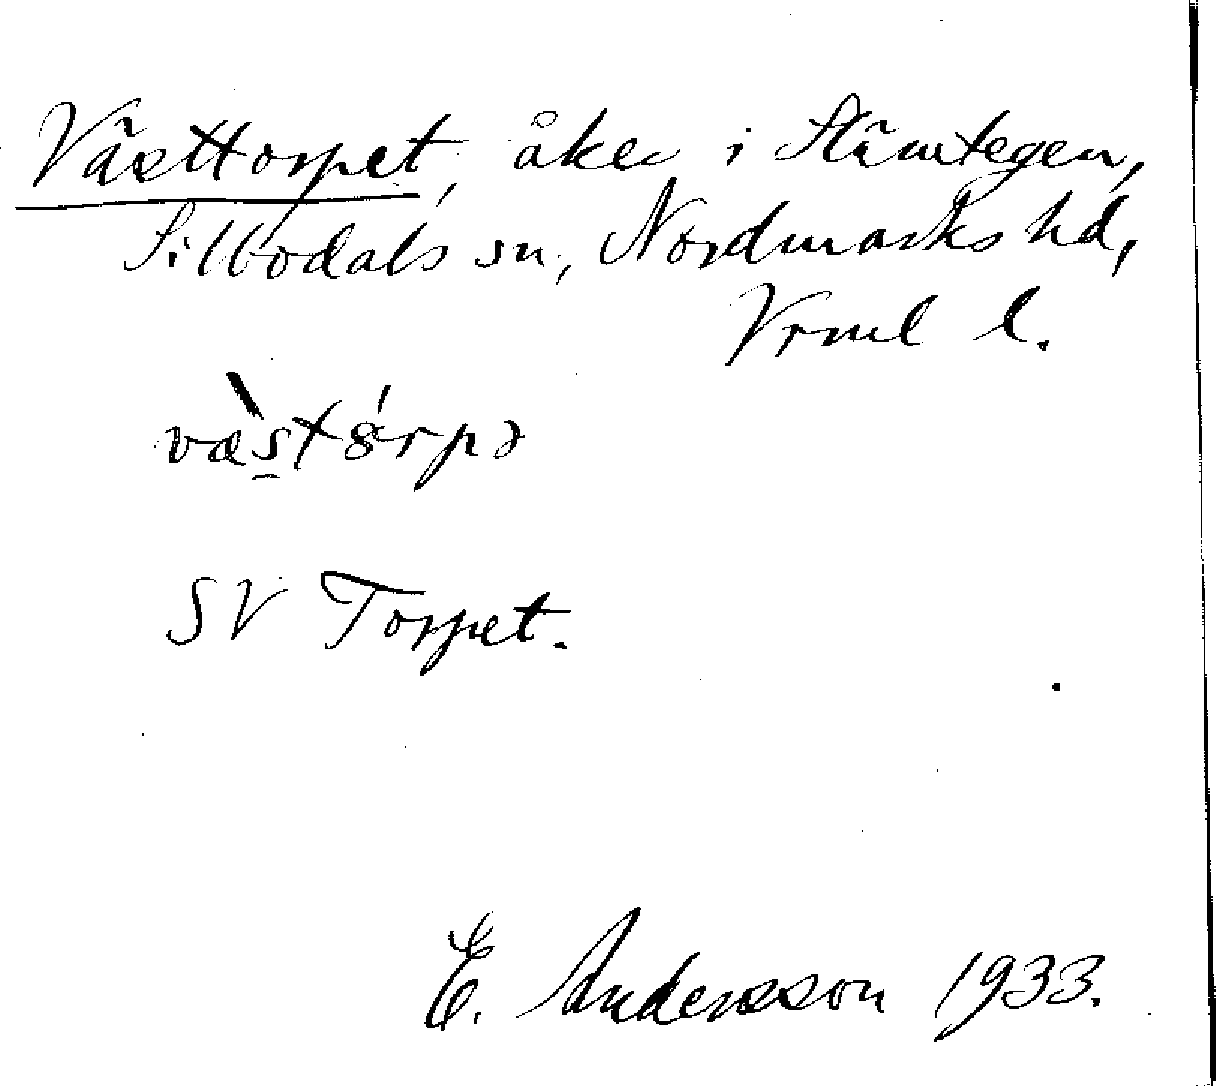 Västtorpet, åker i Stämtegen,
Sillbodals sn, Nordmarks hd,
Vrml l.
væ̀stȣ́rpə
SV Torpet.
E. Andersson 1933.